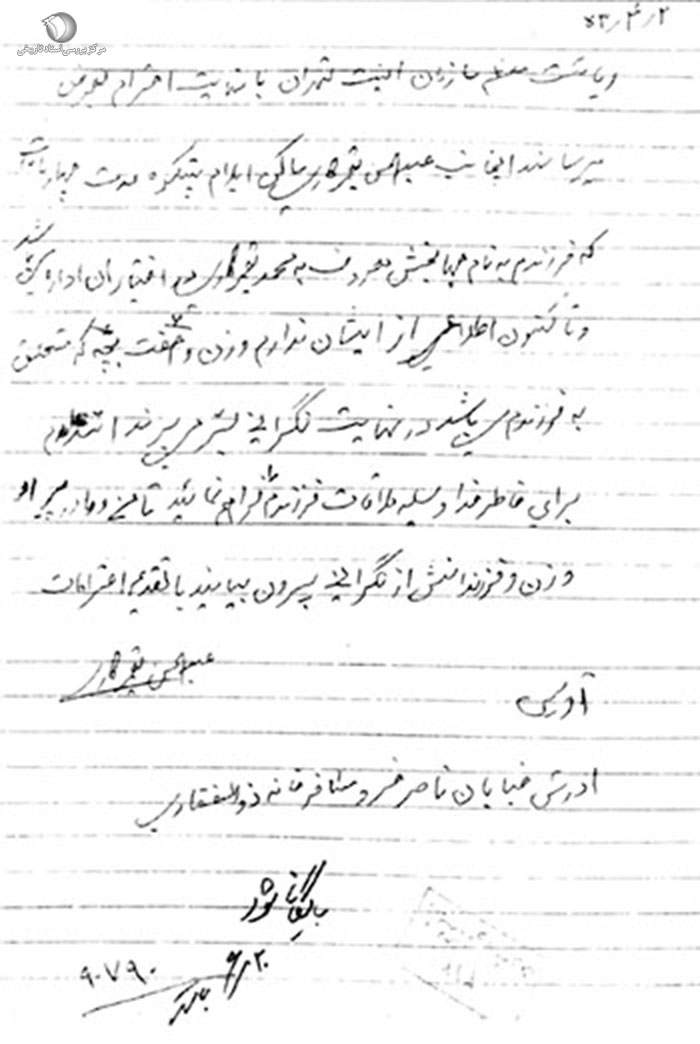 مرکز بررسی اسناد تاریخی
۵۳٫۴٫۲
ریاست معظم سازمان امنیت تهران با نهایت احترام بعرض
میرساند اینجانب عبدالحسن ساکن ایلام پشتکوه مدت چهار ماه است
که فرزندم به نام جهانبخش معروف به محمد در اختیار آن اداره می باشد
و تا کنون اطلاعی از ایشان ندارم و زن و هفت بچه که متعلق
به فرزندم می باشد در نهایت نگرانی بسر می برند استدعا دارم
برای خاطر خدا وسیله ملاقات فرزندم فراهم نمائید تا من و مادر پیر او
و زن و فرزندانش از نگرانی بیرون بیایند با تقدیم احترامات
عبدالحسن
آدرس
ادرس خیابان ناصر خسرو مسافرخانه ذوالفقاری
بایگانی شود
۹۰۷۹۰